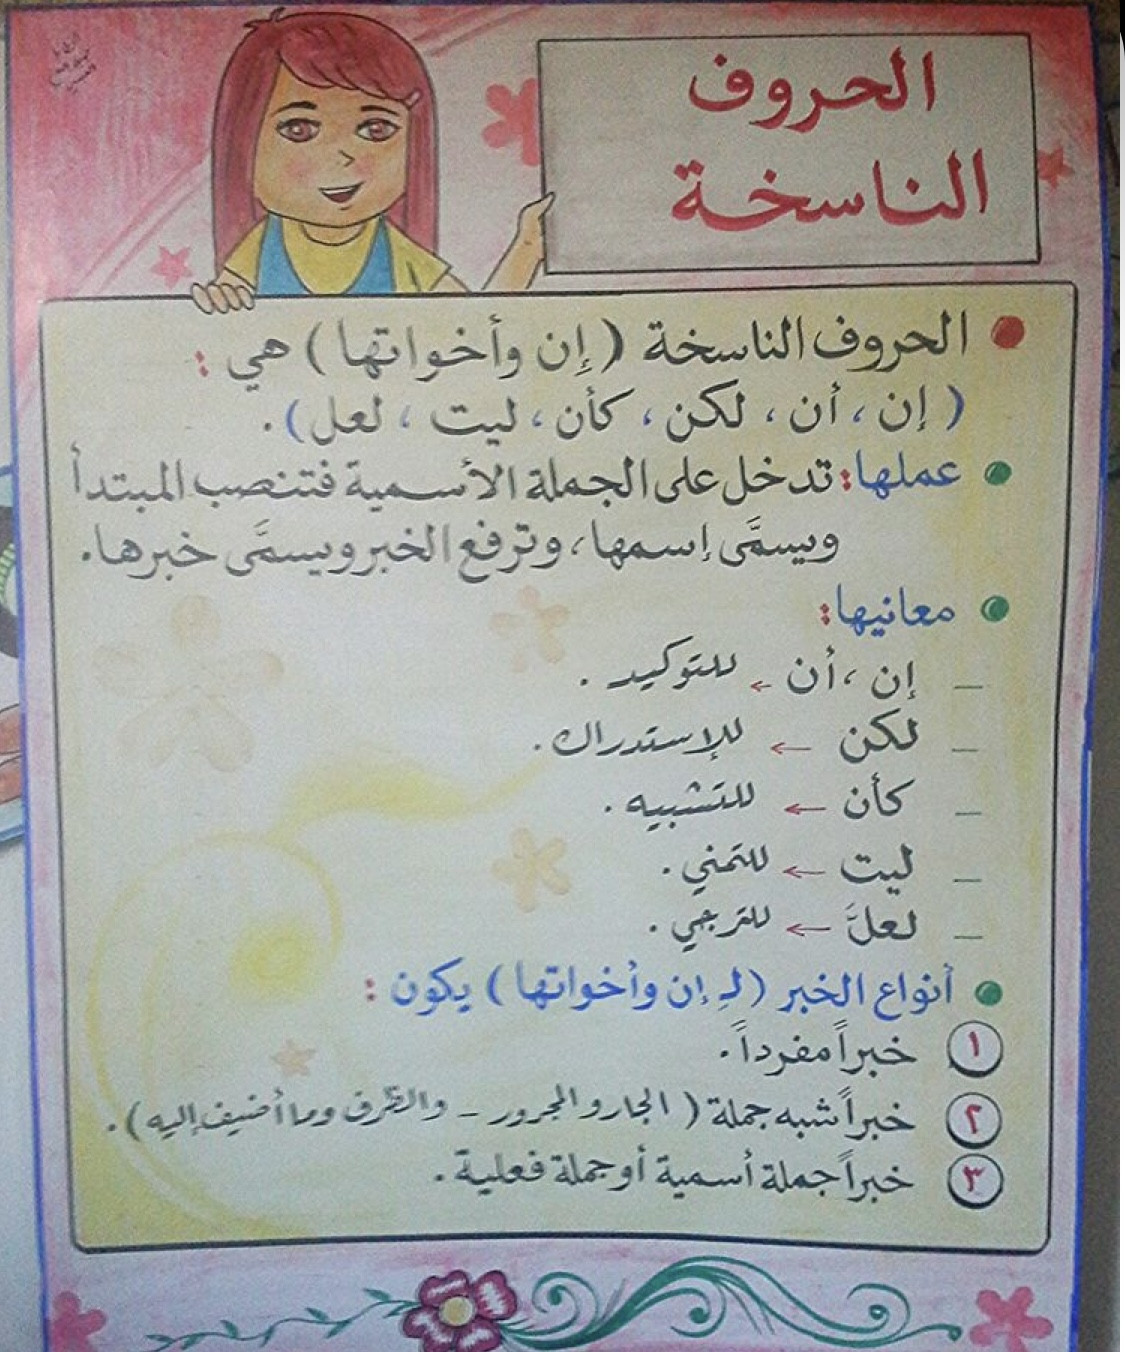 الحروف
الناسخة
الحروف الناسخة (إن وأخواتها) هي :
( إن ، أن ، لكن ، كأن ، ليت ، لعل ) .
عملها : تدخل على الجملة الأسمية فتنصب المبتدأ
ويسمَّى إسمها ، وترفع الخبر ويسمَّى خبرها .
معانيها :
_ إن ، أن ← للتوكيد .
_ لكن ← للإستدراك .
_ كأن ← للتشبيه .
_ ليت ← للتمني .
_ لعلَّ ← للترجي .
أنواع الخبر (لـ إن وأخواتها) يكون :
١ خبراً مفرداً .
٢ خبراً شبه جملة ( الجار والمجرور – والظرف وما أضيف إليه ) .
٣ خبراً جملة أسمية أو جملة فعلية .